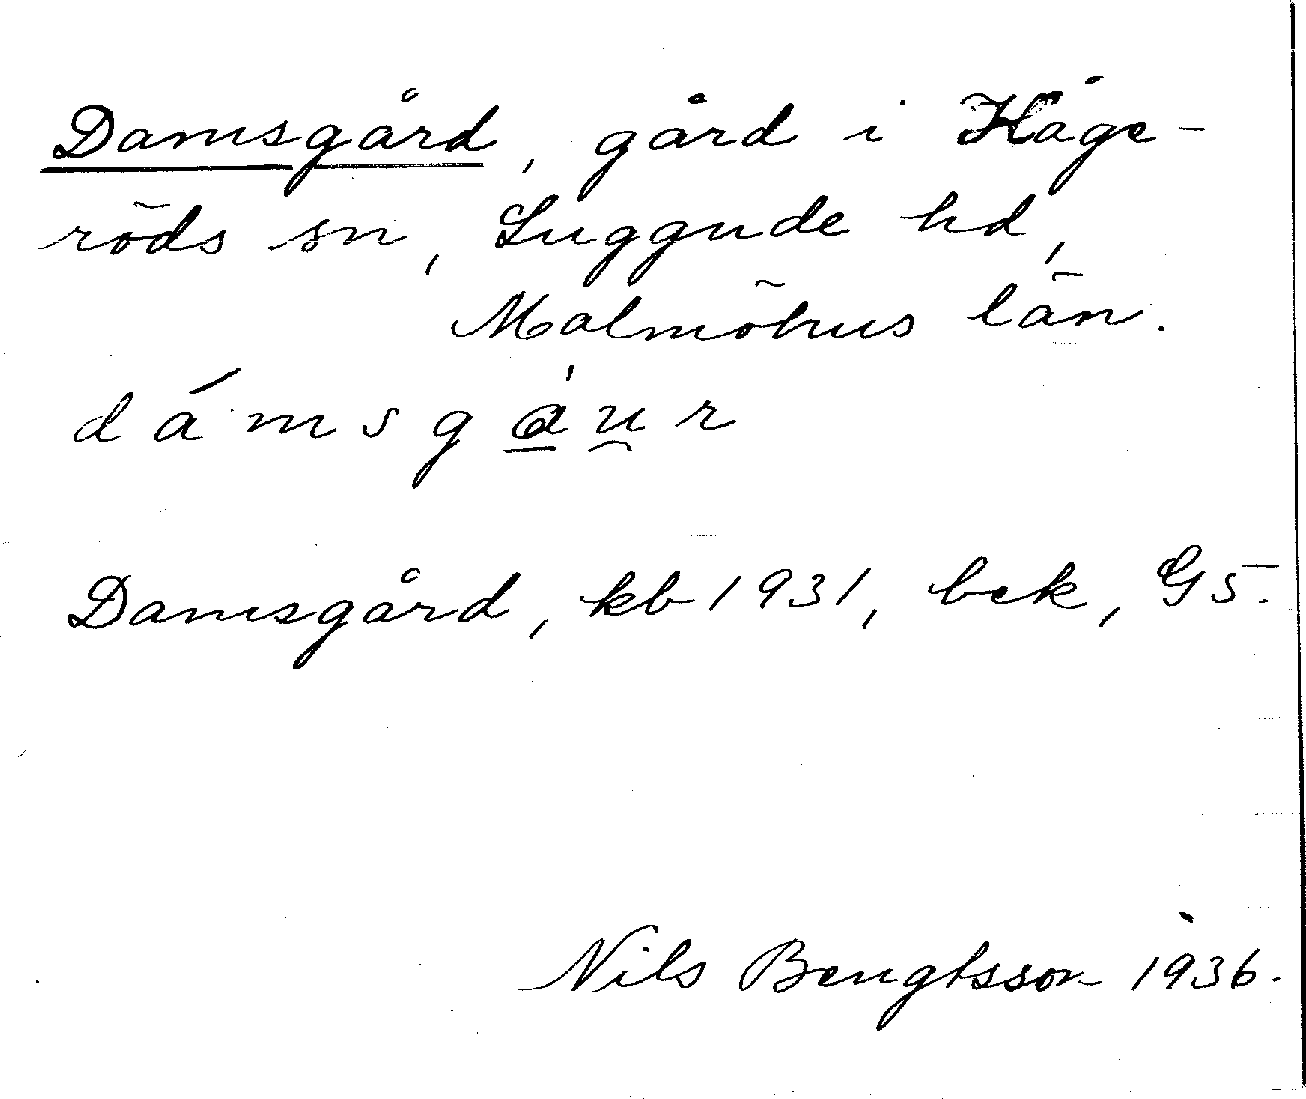 Damsgård, gård i Kåge-
röds sn, Luggude hd,
Malmöhus län.
dámsgàu̯r
Damsgård, kb 1931, bek, G5.
Nils Bengtsson 1936.